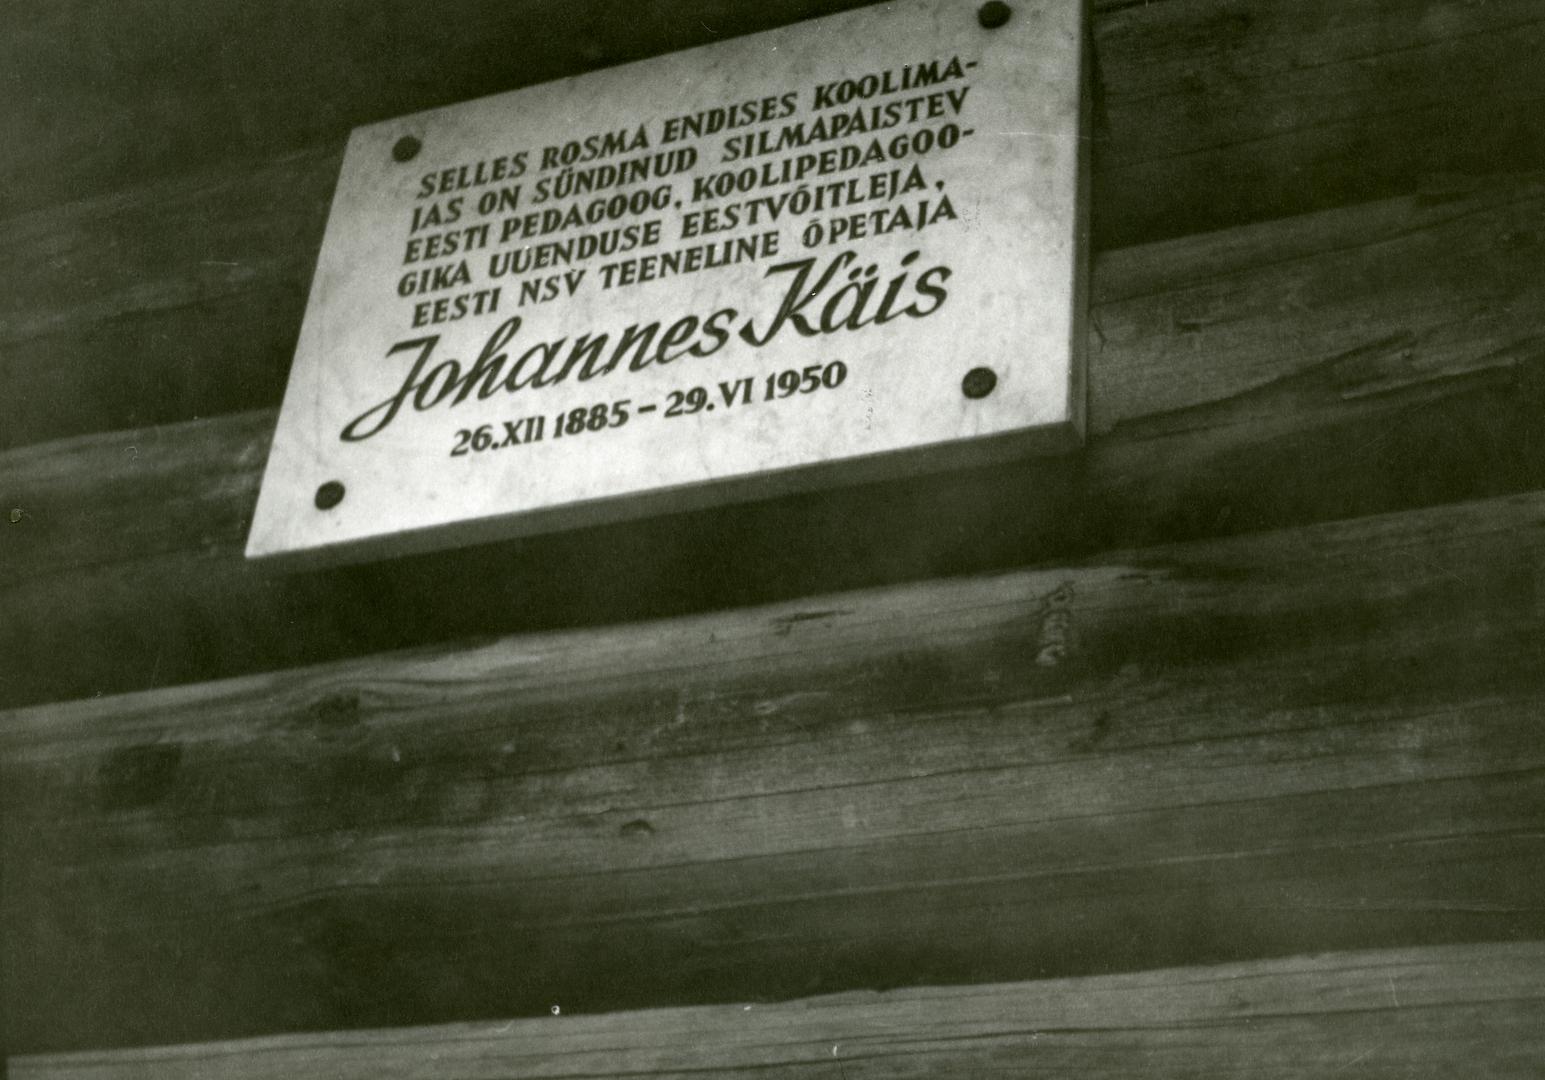 SELLES ROSMA ENDISES KOOLIMA-
JAS ON SÜNDINUD SILMAPAISTEV
EESTI PEDAGOOG, KOOLIPEDAGOO-
GIKA UUENDUSE EESTVÕITLEJA,
EESTI NSV TEENELINE ÕPETAJA
Johannes Käis
26.XII 1885 – 29.VI 1950